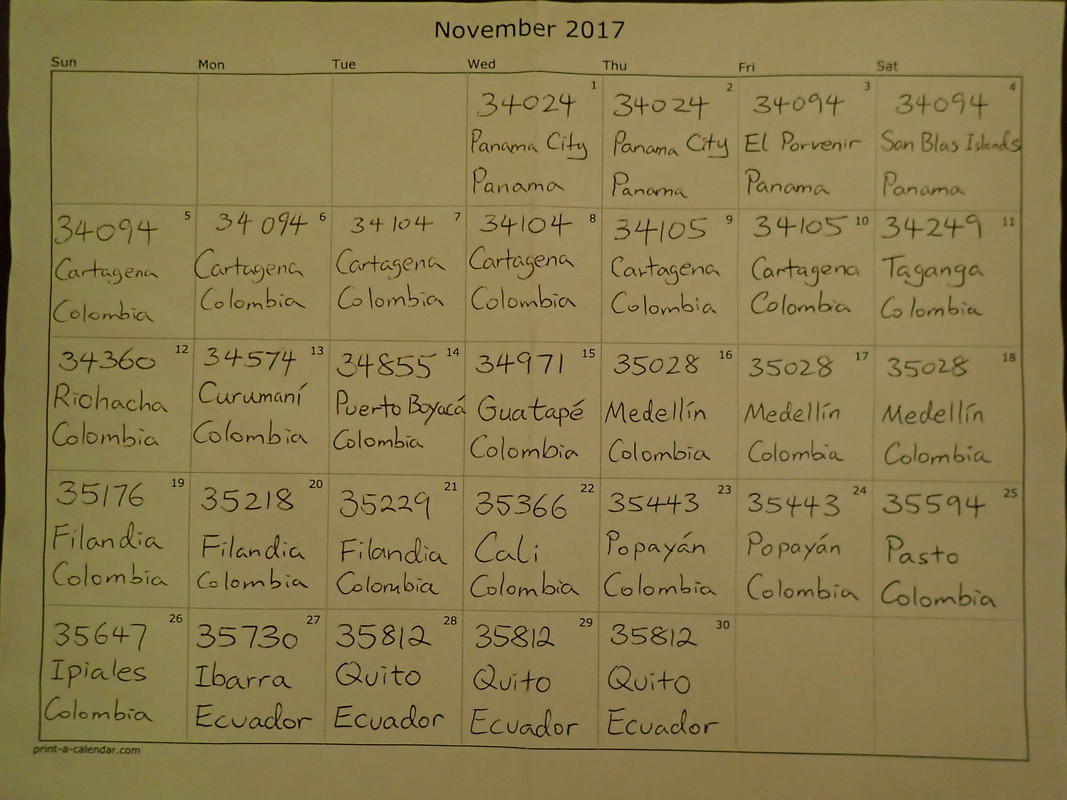 November 2017
Sun Mon Tue Wed Thu Fri Sat
1
34024
Panama City
Panama
2
34024
Panama City
Panama
3
34094
El Porvenir
Panama
4
34094
San Blas Islands
Panama
5
34094
Cartagena
Colombia
6
34094
Cartagena
Colombia
7
34104
Cartagena
Colombia
8
34104
Cartagena
Colombia
9
34105
Cartagena
Colombia
10
34105
Cartagena
Colombia
11
34249
Taganga
Colombia
12
34360
Riohacha
Colombia
13
34574
Curumaní
Colombia
14
34855
Puerto Boyacá
Colombia
15
34971
Guatapé
Colombia
16
35028
Medellín
Colombia
17
35028
Medellín
Colombia
18
35028
Medellín
Colombia
19
35176
Filandia
Colombia
20
35218
Filandia
Colombia
21
35229
Filandia
Colombia
22
35366
Cali
Colombia
23
35443
Popayán
Colombia
24
35443
Popayán
Colombia
25
35594
Pasto
Colombia
26
35647
Ipiales
Colombia
27
35730
Ibarra
Ecuador
28
35812
Quito
Ecuador
29
35812
Quito
Ecuador
30
35812
Quito
Ecuador
print-a-calendar.com